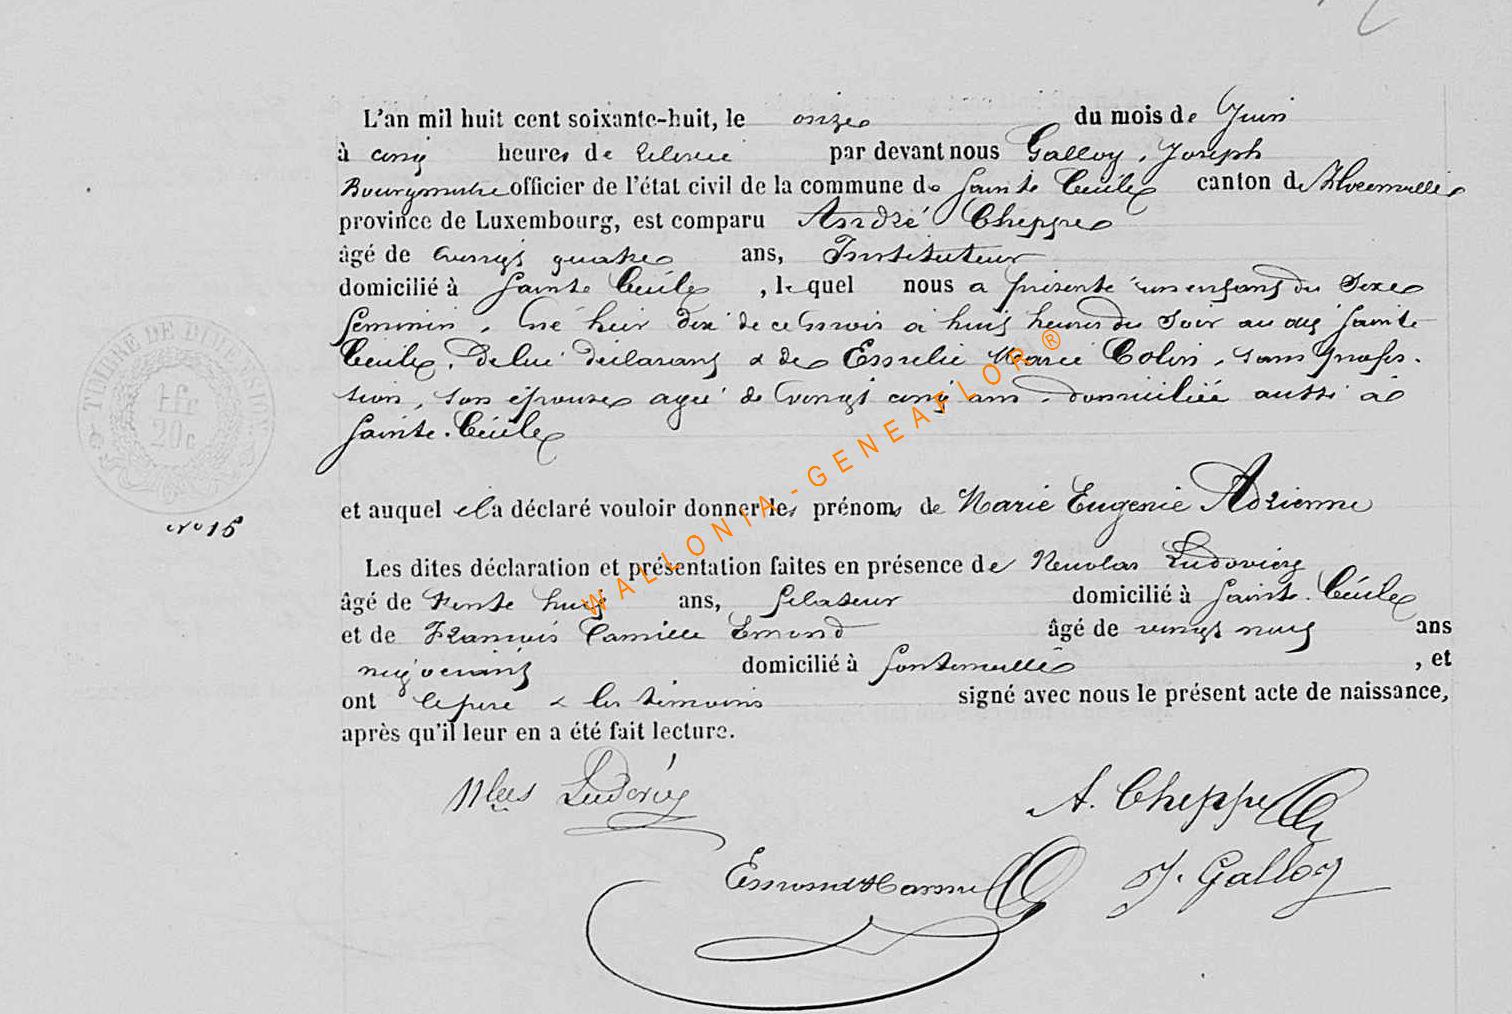 L'an mil huit cent soixante-huit, le onze du mois de Juin
à cinq heures de relevée par devant nous Galloy, Joseph
Bourgmestre officier de l'état civil de la commune de Sainte Cécile canton de Florenville
province de Luxembourg, est comparu André Cheppe
âgé de vingt quatre ans, Instituteur
domicilié à Sainte Cécile, lequel nous a présenté un enfant du Sexe
féminin, né hier dix de ce mois à huit heures du Soir au dit Sainte
Cécile, de lui déclarant & de Emelie Marie Colin, sans profes-
sion, son épouse agée de vingt cinq ans, domiciliée aussi à
Sainte-Cécile
et auquel il a déclaré vouloir donner les prénoms de Marie Eugenie Adrienne
Les dites déclaration et présentation faites en présence de Nicolas Ludovicy
âgé de Trente huit ans, filateur domicilié à Sainte-Cécile
et de François Camille Emond âgé de vingt neuf ans
négociant domicilié à Fontenoille, et
ont le père & les témoins signé avec nous le présent acte de naissance,
après qu'il leur en a été fait lecture.
TIMBRE DE DIMENSION
1 fr
20c
no 15
Nlas Ludovicy
A. Cheppe
Emond
J. Galloy
WALLONIA-GENEAFLOR®